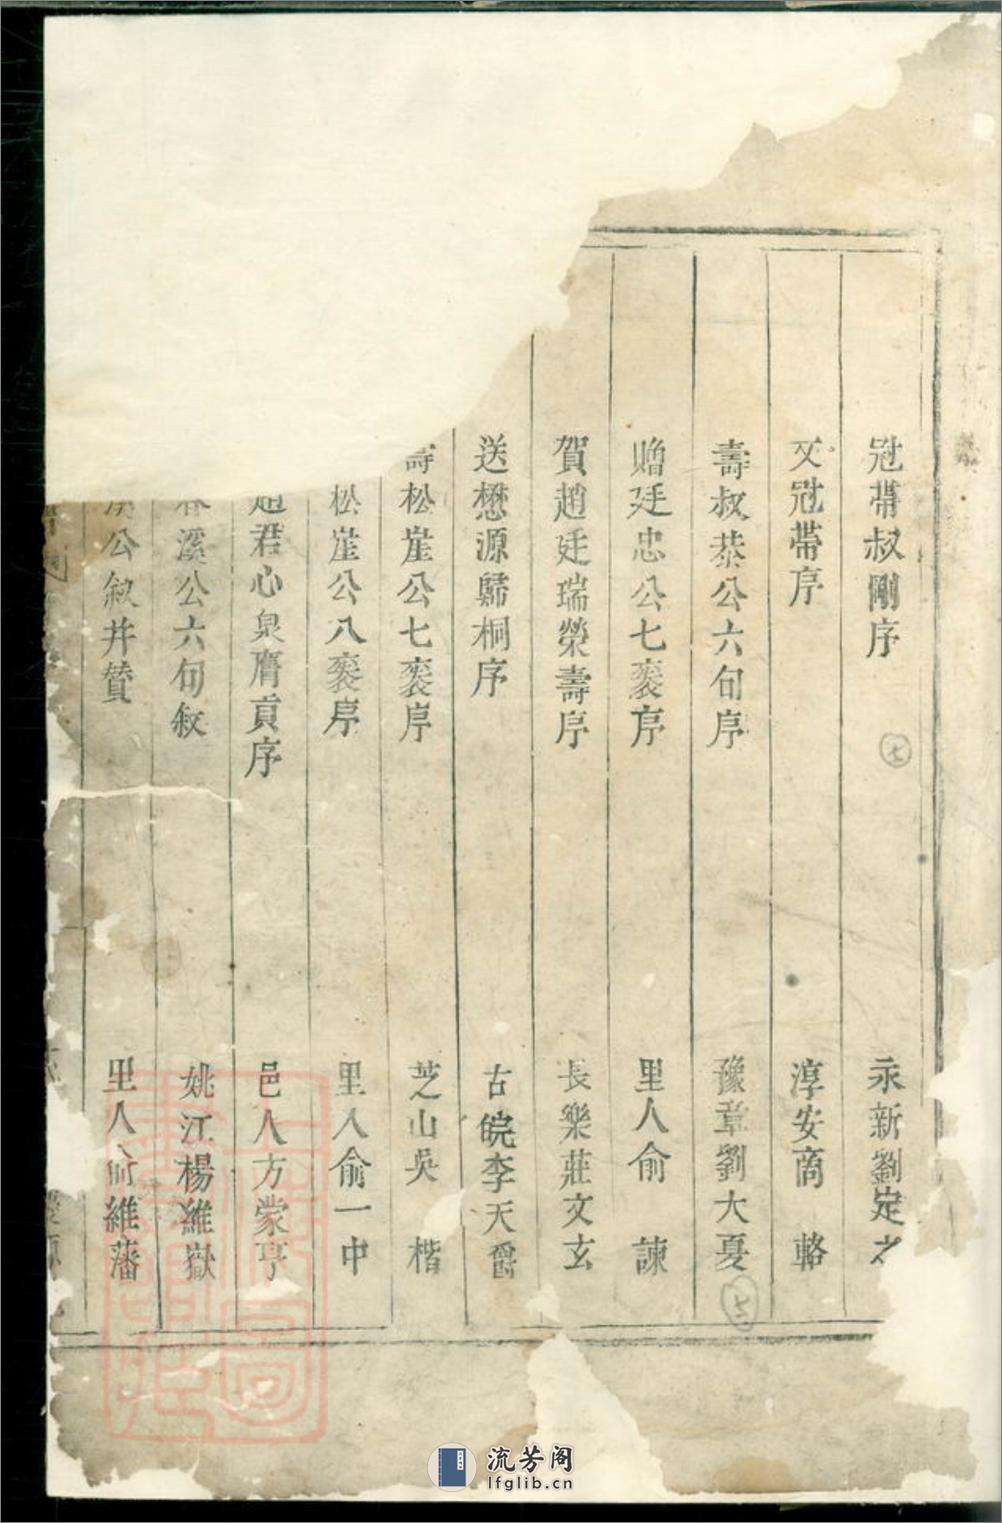 冠帶叔剛序 永新劉定之
又冠帶序 淳安商 輅
壽叔恭公六旬序 豫章劉大夏
贈廷忠公七袠序 里人俞 諫
賀趙廷瑞榮壽序 長樂莊文玄
送懋源歸桐序 古皖李天爵
壽松崖公七袠序 芝山吳 楷
松崖公八袠序 里人俞一中
趙君心泉膺貢序 邑人方蒙亨
溪公六旬叙 姚江楊維嶽
公叙并贊 里人俞維藩
七
七
流芳阁
lfglib.cn